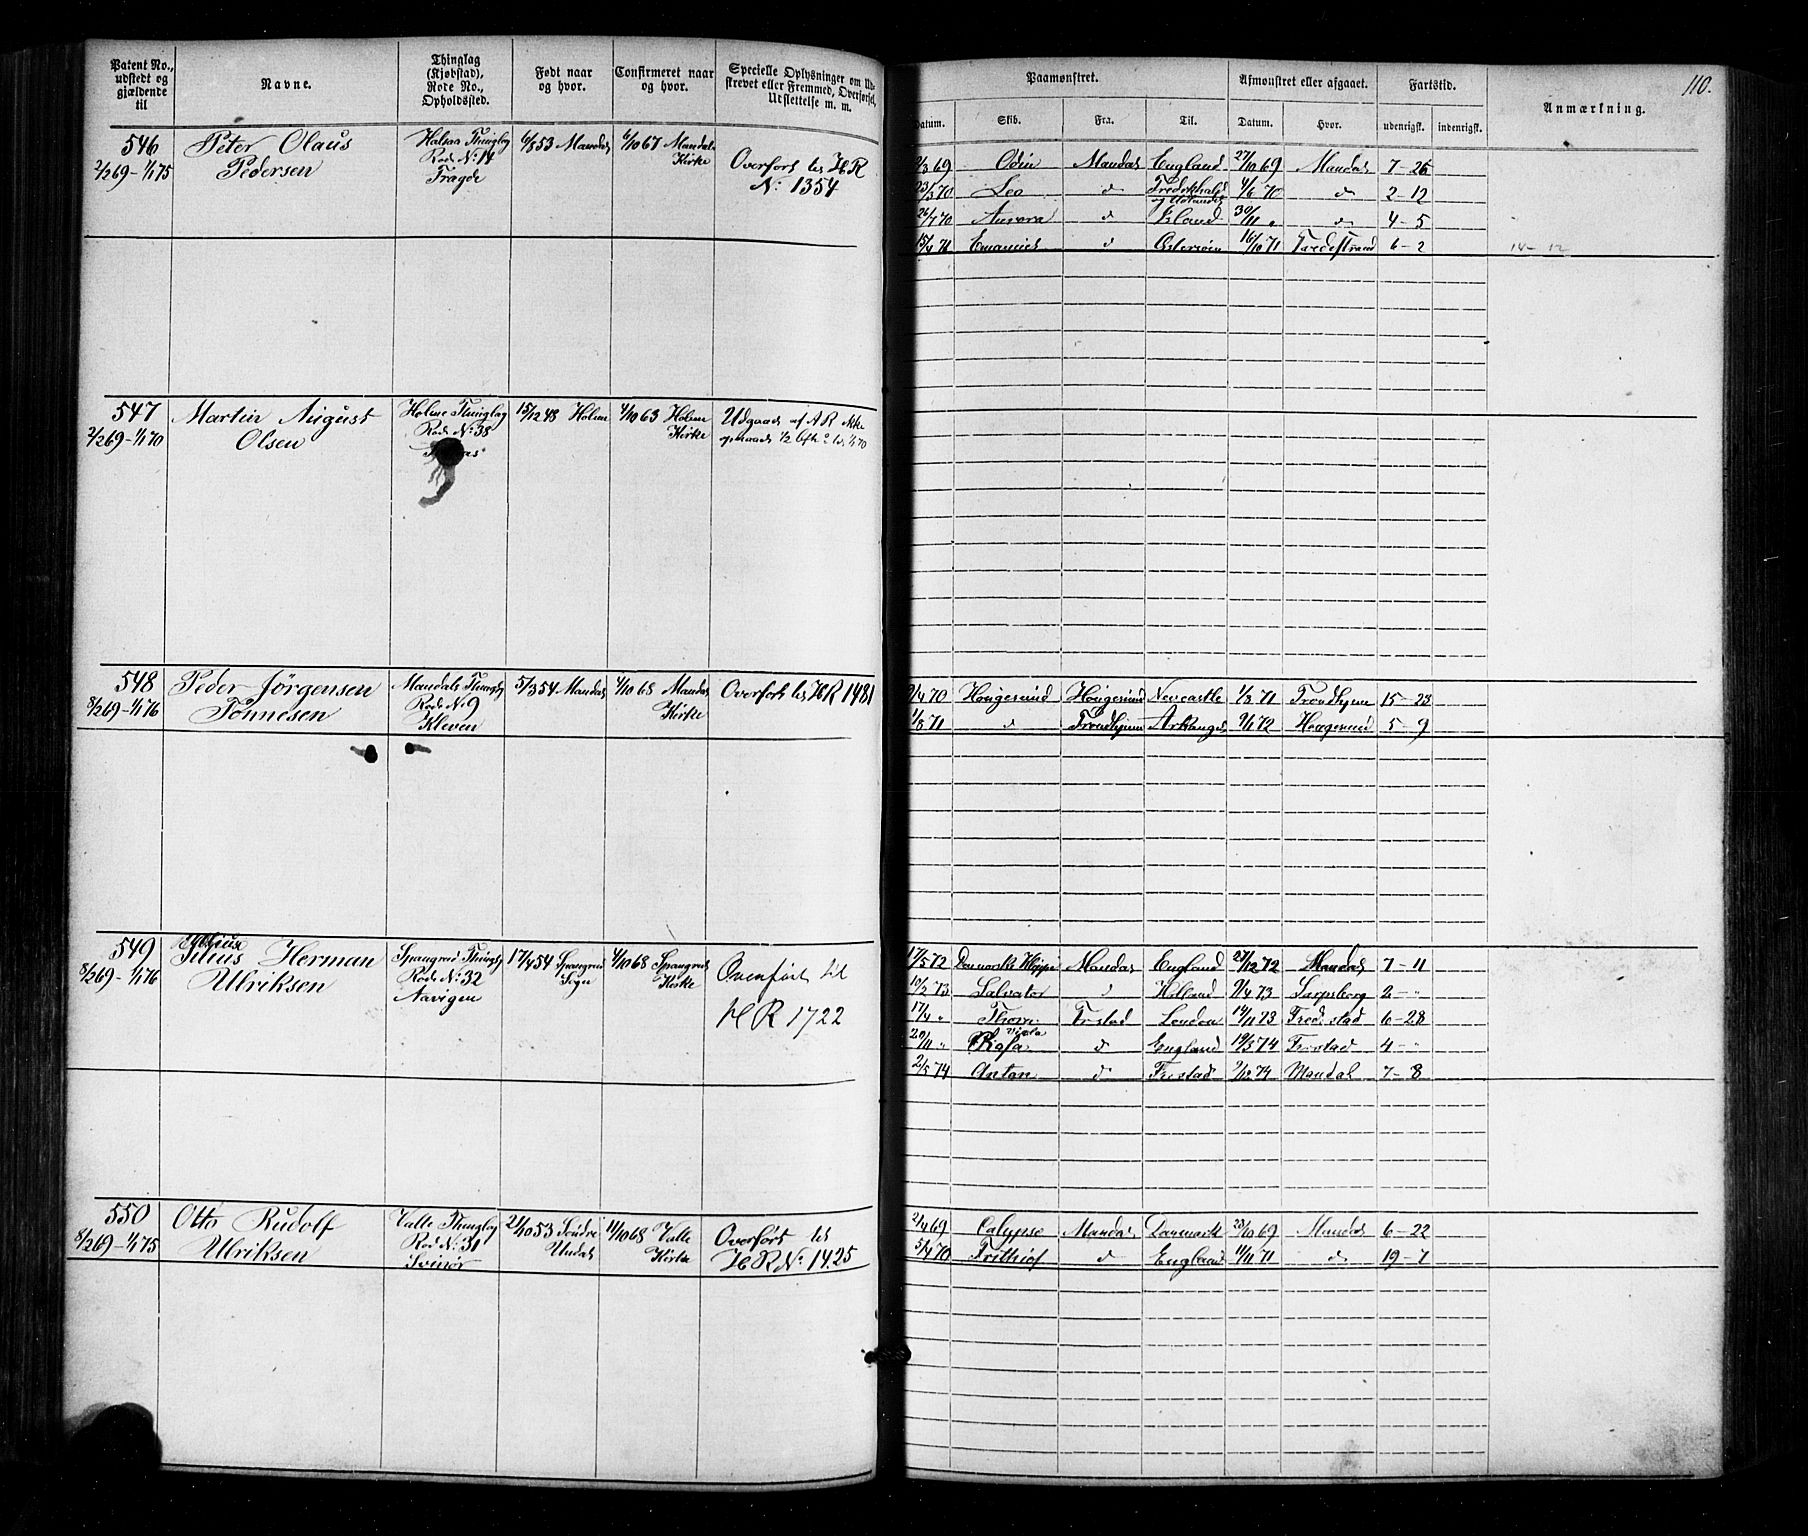 110.
Patent No., udstedt og gjældende til
Navne.
Thinglag (Kjøbstad), Rode No., Opholdssted.
Født naar og hvor.
Confirmeret naar og hvor.
Specielle Oplysninger om Udskrevet eller Fremmed, Overførsel, Udslettelse m. m.
Paamønstret.
Datum. Skib. Fra. Til.
Afmønstret eller afgaaet.
Datum. Hvor.
Fartstid.
udenrigsk. indenrigsk.
Anmærkning.
546
2/2 69 - 1/1 75
Peter Olaus
Pedersen
Halsaa Thinglag
Rode No: 14
Tragde
6/8 53 Mandal
6/10 67 Mandal
Kirke
Overført til HR
No: 1354
69 Odin Mandal England 27/10 69 Mandal 7-26
23/3 70 Leo d Frederikhald og Udlandet 4/6 70 d 2-12
26/7 70 Aurora d Island 30/11 " d 4-5
15/4 71 Emanuel d Østersøen 16/10 71 Tvedestrand 6-2
14-12
547
2/2 69 - 1/1 70
Martin August
Olsen
Holme Thinglag
Rode No: 38
15/12 48 Holme
4/10 63 Holme
Kirke
Udgaaet af AR ikke
548
8/2 69 - 1/1 76
Peder Jörgensen
Tönnesen
Mandals Thinglag
Rode No 9
Kleven
5/3 54 Mandal
4/10 68 Mandal
Kirke
Overført til HR 1481
/4 70 Hougesund Hougesund Newcastle 1/3 71 Trondhjem 15-23
1/8 71 d Trondhjem Arkangel 9/1 72 Hougesund 5-9
549
8/2 69 - 1/1 76
Julius Herman
Ulriksen
Spangreid Thinglag
Rode No: 32
Navigen
17/4 54 Spangreid
Sogn
4/10 68 Spangreid
Kirke
Overført til
HR 1722
17/5 72 Mandal England 27/12 72 Mandal 7-11
10/2 73 Salvator d Holland 9/4 73 Sarpsborg 2-"
17/4 " Thor Frstad London 14/11 73 Fred.stad 6-28
20/11 " Rosa d England 19/3 74 Frstad 4-"
2/5 74 Anton d Frstad 9/12 74 Mandal 7-8
550
8/2 69 - 1/1 75
Otto Rudolf
Ulriksen
Valle Thinglag
Rod No: 31
Svinör
21/10 53 Söndre
Undal
11/10 68 Valle
Kirke
Overført til
HR No: 1425
2/4 69 Calypso Mandal Danmark 23/10 69 Mandal 6-22
5/4 70 Frithiof d England 11/11 71 d 19-7